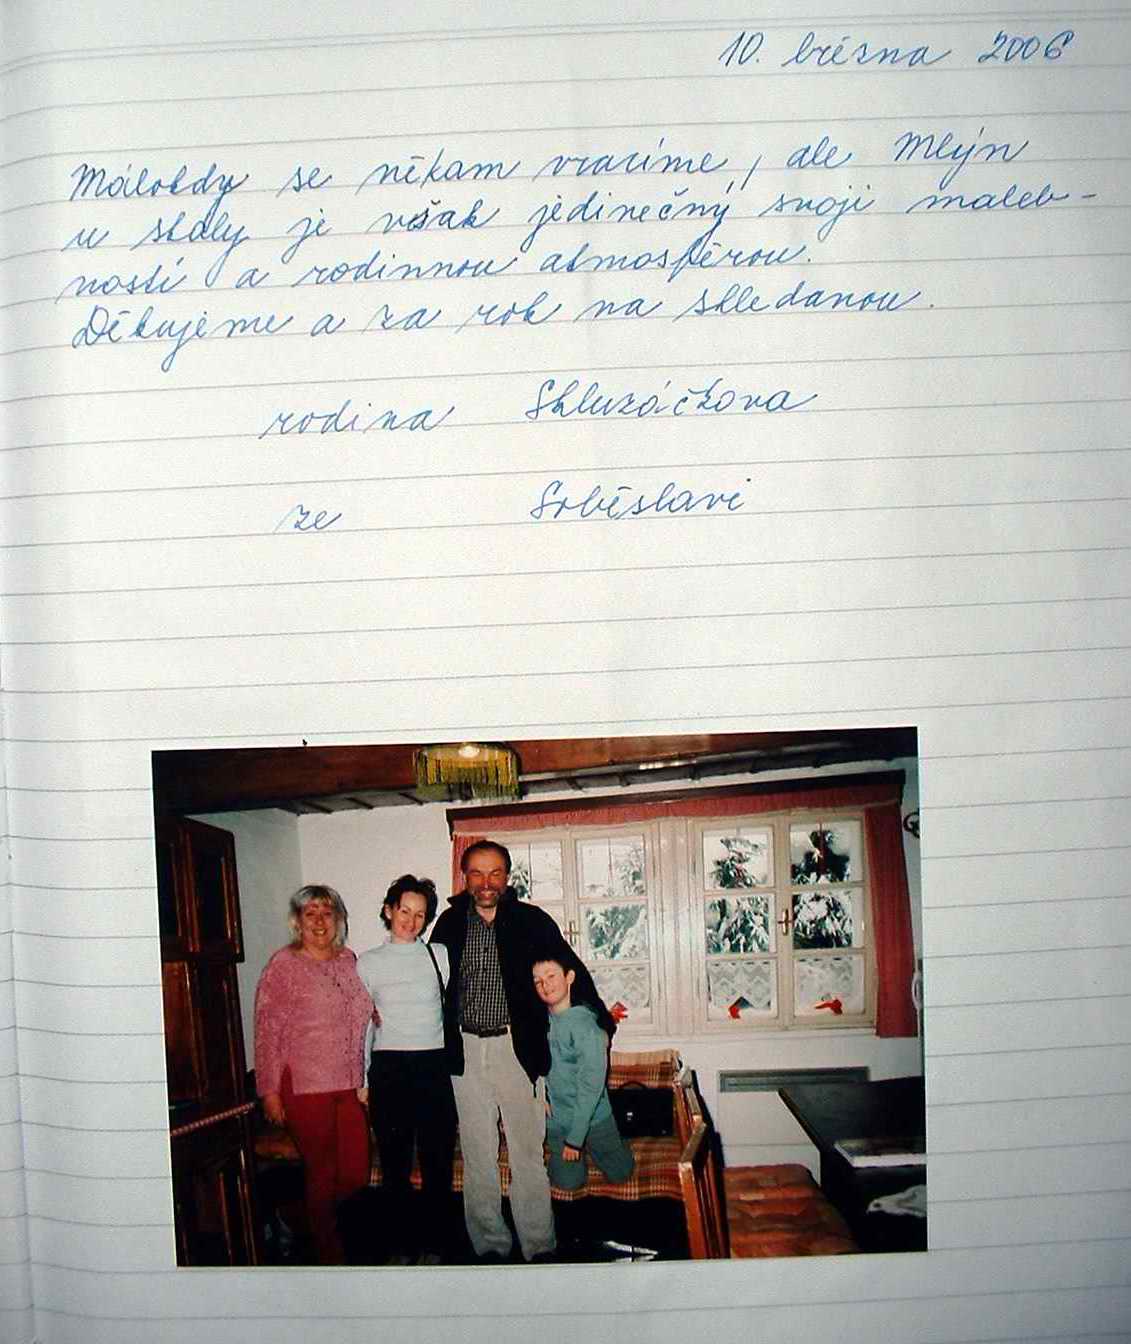 10. března 2006
Málokdy se někam vracíme, ale Mlýn
u skály je však jedinečný svoji maleb-
ností a rodinnou atmosférou.
Děkujeme a za rok na shledanou.
rodina Skluzáčkova
ze Srběslavi